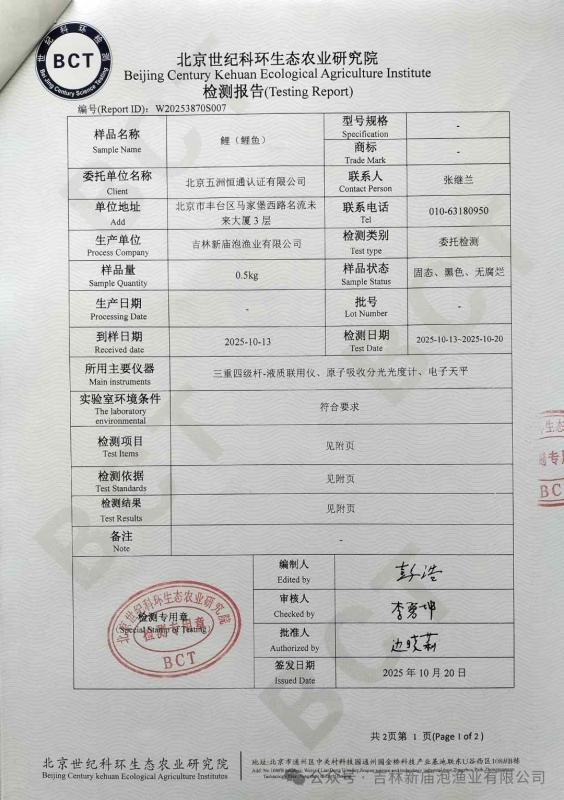 世纪科环检测
BCT
Beijing Century Science Testing
北京世纪科环生态农业研究院
Beijing Century Kehuan Ecological Agriculture Institute
检测报告(Testing Report)
编号(Report ID): W20253870S007
样品名称 Sample Name
鲤（鲤鱼）
型号规格 Specification
-
商标 Trade Mark
-
委托单位名称 Client
北京五洲恒通认证有限公司
联系人 Contact Person
张继兰
单位地址 Add
北京市丰台区马家堡西路名流未
来大厦 3 层
联系电话 Tel
010-63180950
生产单位 Process Company
吉林新庙泡渔业有限公司
检测类别 Test type
委托检测
样品量 Sample Quantity
0.5kg
样品状态 Sample Status
固态、黑色、无腐烂
生产日期 Processing Date
-
批号 Lot Number
-
到样日期 Received date
2025-10-13
检测日期 Test Date
2025-10-13~2025-10-20
所用主要仪器 Main instruments
三重四级杆-液质联用仪、原子吸收分光光度计、电子天平
实验室环境条件
The laboratory
environmental
符合要求
检测项目 Test Items
见附页
检测依据 Test Standards
见附页
检测结果 Test Results
见附页
备注 Note
-
编制人 Edited by
彭浩
审核人 Checked by
批准人 Authorized by
边晓莉
签发日期 Issued Date
2025 年 10 月 20 日
北京世纪科环生态农业研究院
检测专用章
Special Stamp of Testing
检测专用章
BCT
BCT
共 2页第 1 页(Page 1 of 2)
北京世纪科环生态农业研究院
Beijing Century kehuan Ecological Agriculture Institutes
公众号 · 吉林新庙泡渔业有限公司